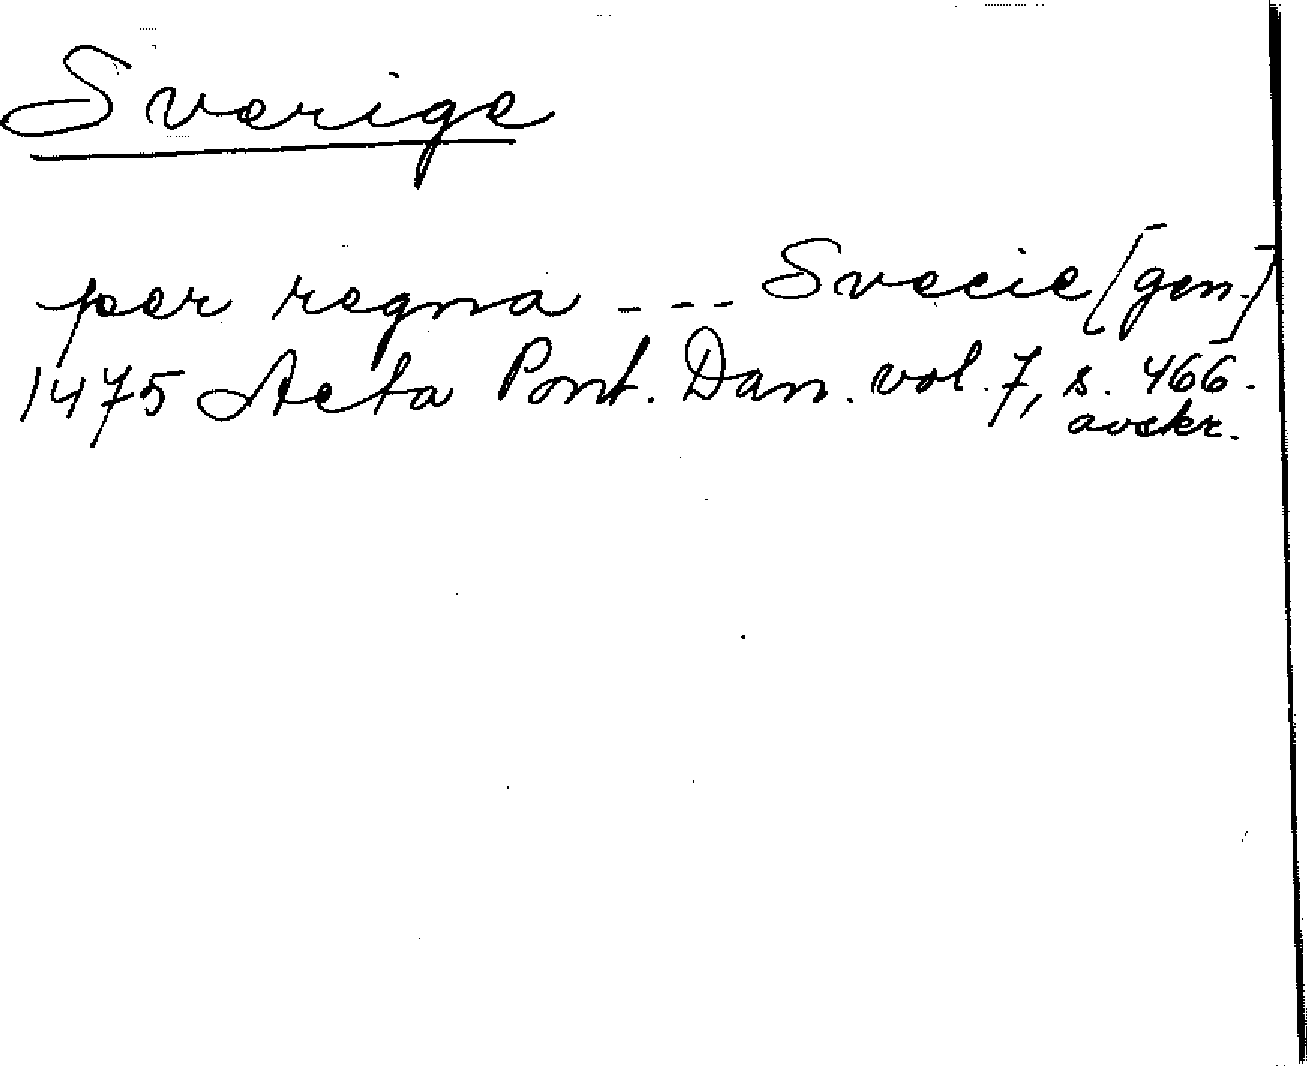 Sverige
per regna --- Svecie [gen.]
1475 Acta Pont. Dan. vol. 7, s. 466.
avskr.